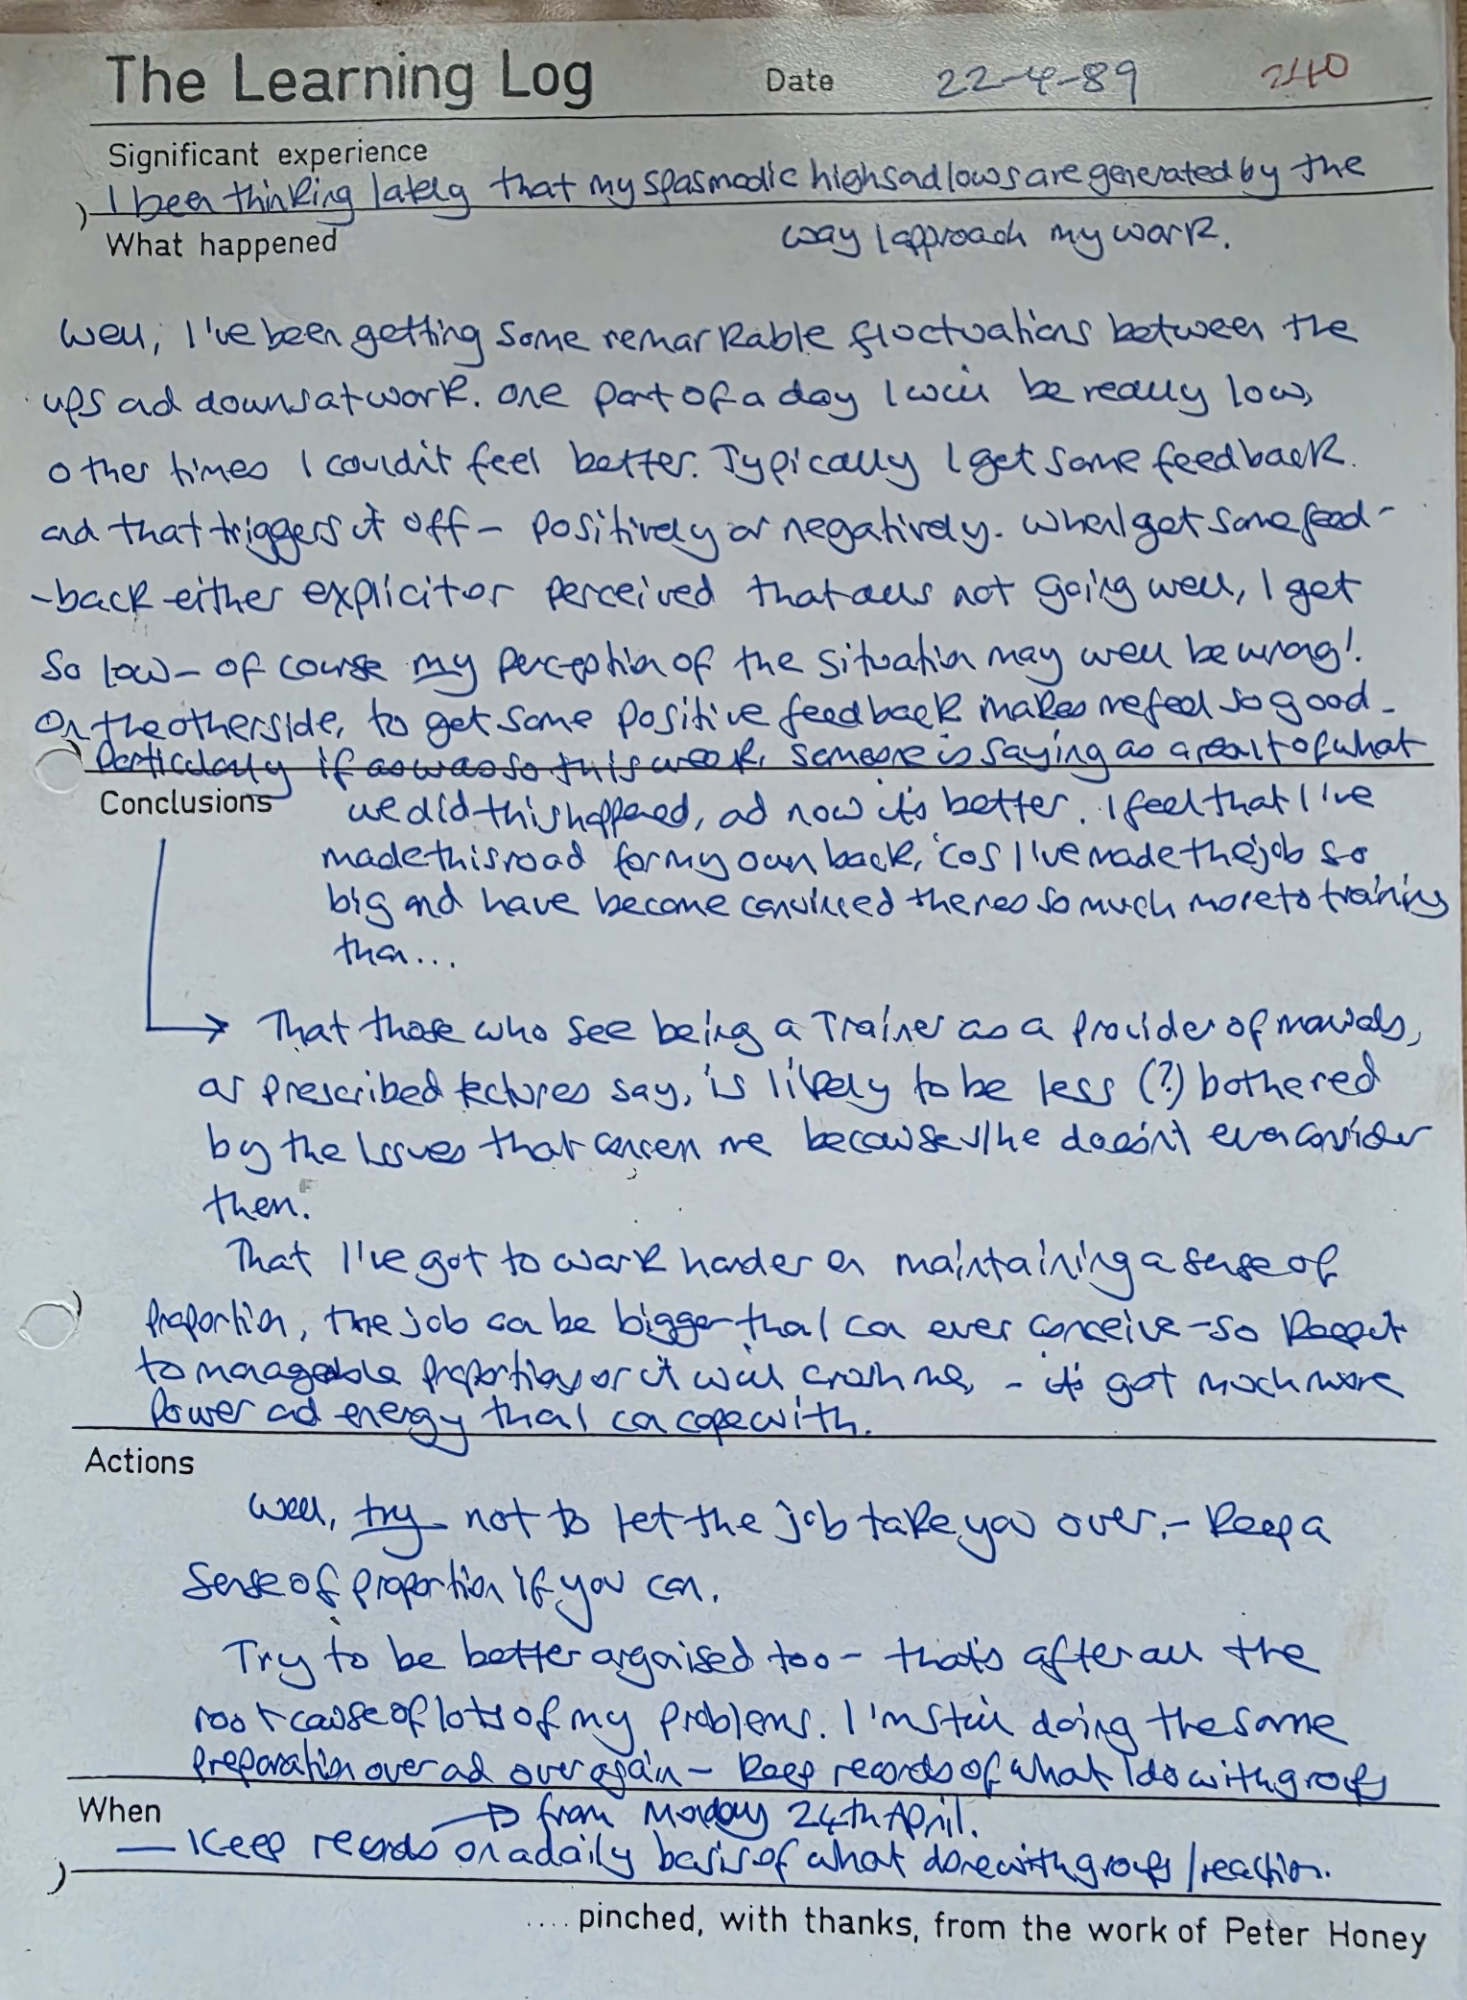 The Learning Log Date 22-4-89 240
Significant experience
I been thinking lately that my spasmodic highs ad lows are generated by the
way I approach my work.
What happened
Well, I've been getting some remarkable fluctuations between the
ups ad downs at work. One part of a day I will be really low,
other times I couldn't feel better. Typically I get some feedback
ad that triggers it off - positively or negatively. When I get some feed-
-back either explicit or perceived that alls not going well, I get
so low - of course my perception of the situation may well be wrong!
On the other side, to get some positive feedback makes me feel so good -
Particularly if as was so this week, someone is saying as a result of what
we did this happened, ad now it's better. I feel that I've
Conclusions
made this road for my own back, 'cos I've made the job so
big and have become convinced theres so much more to training
than...
That those who see being a Trainer as a provider of manuals,
or prescribed lectures say, is likely to be less (?) bothered
by the issues that concern me because s/he doesn't ever consider
them.
That I've got to work harder on maintaining a sense of
proportion, the job can be bigger than I can ever conceive - so keep it
to manageable proportions or it will crash me, - it's got much more
power ad energy than I can cope with.
Actions
Well, try not to let the job take you over, - keep a
sense of proportion if you can.
Try to be better organised too - that's after all the
root cause of lots of my problems. I'm still doing the same
preparation over ad over again - keep records of what I do with groups
When
from Monday 24th April.
- Keep records on a daily basis of what done with groups / reaction.
.... pinched, with thanks, from the work of Peter Honey